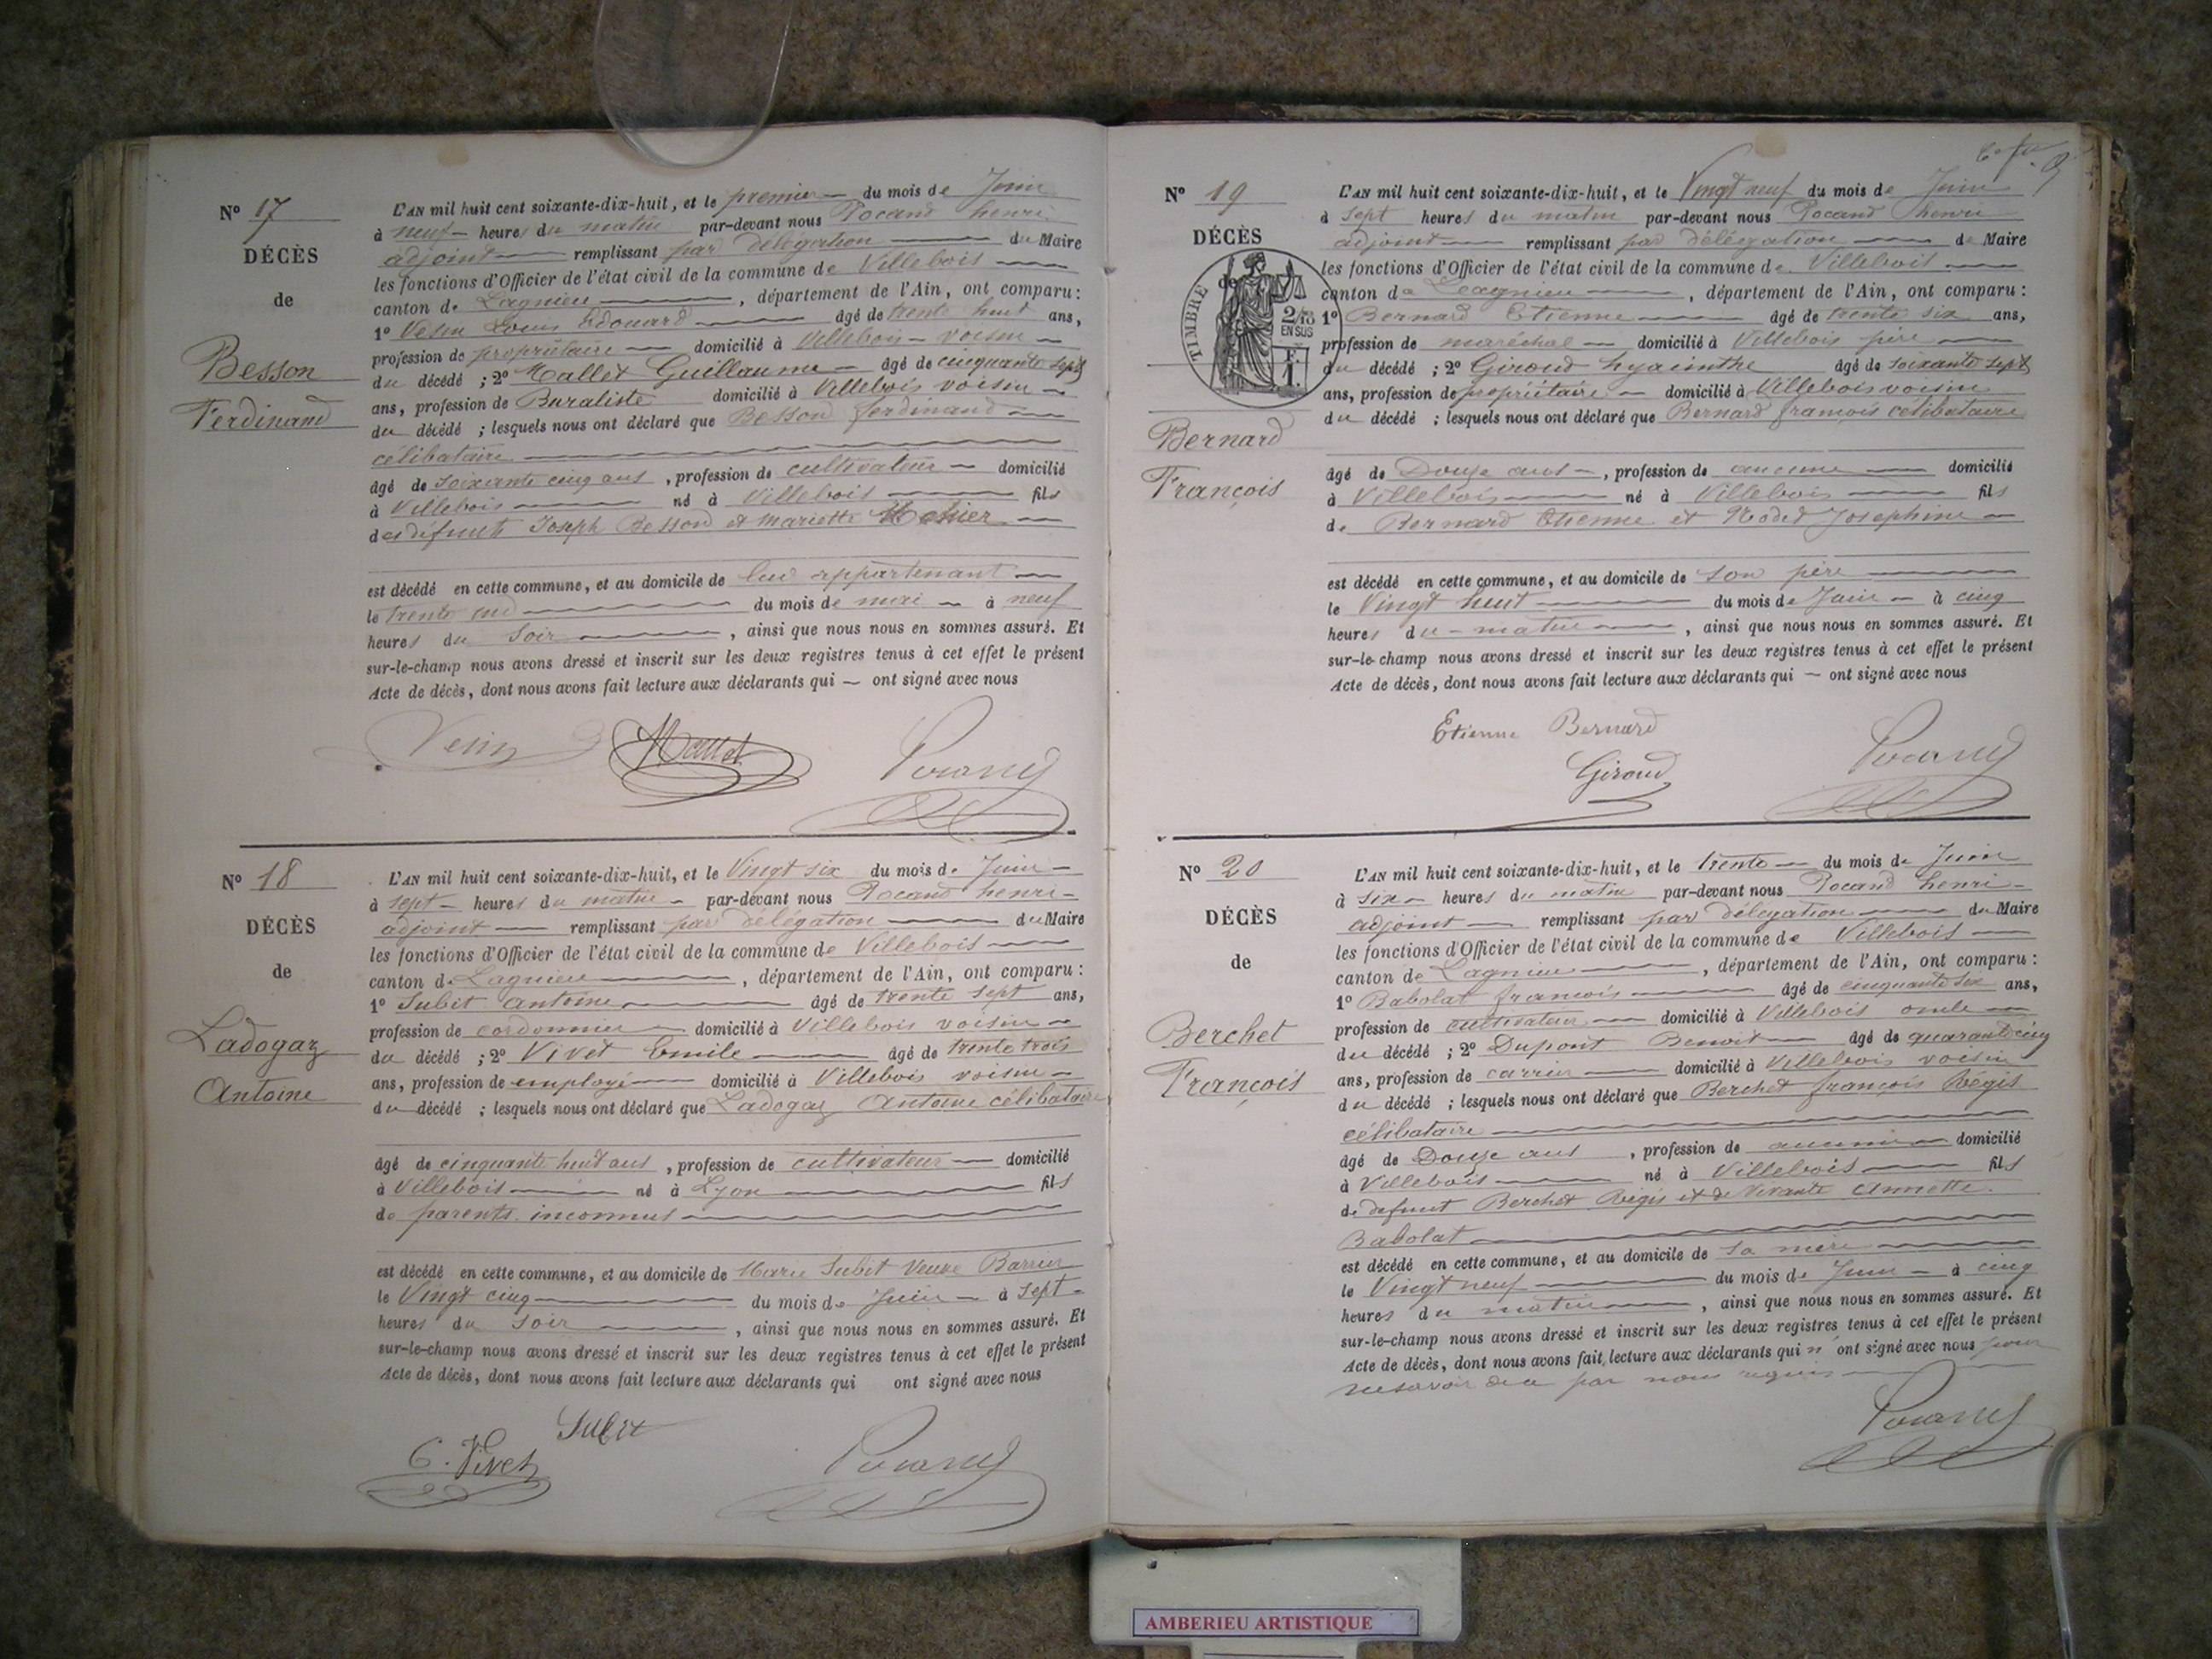 N° 17
DÉCÈS
de
Besson
Ferdinand
L'AN mil huit cent soixante-dix-huit, et le premier du mois de Juin
à neuf heures du matin par-devant nous Pocand henri
adjoint remplissant par délégation du Maire
les fonctions d'Officier de l'état civil de la commune de Villebois
canton de Lagnieu, département de l'Ain, ont comparu :
1° Vesin Louis Edouard âgé de trente huit ans,
profession de propriétaire domicilié à Villebois voisin
du décédé ; 2° Mallet Guillaume âgé de cinquante sept
ans, profession de Buraliste domicilié à Villebois voisin
du décédé ; lesquels nous ont déclaré que Besson ferdinand
célibataire
âgé de soixante cinq ans, profession de cultivateur domicilié
à Villebois né à Villebois fils
des défunts Joseph Besson et Mariette
est décédé en cette commune, et au domicile de lui appartenant
le trente un du mois de mai à neuf
heures du soir, ainsi que nous nous en sommes assuré. Et
sur-le-champ nous avons dressé et inscrit sur les deux registres tenus à cet effet le présent
Acte de décès, dont nous avons fait lecture aux déclarants qui — ont signé avec nous
Vesin Mallet Pocand
N° 18
DÉCÈS
de
Ladogaz
Antoine
L'AN mil huit cent soixante-dix-huit, et le Vingt six du mois de Juin
à sept heures du matin par-devant nous Pocand henri
adjoint remplissant par délégation du Maire
les fonctions d'Officier de l'état civil de la commune de Villebois
canton de Lagnieu, département de l'Ain, ont comparu :
1° Subit antoine âgé de trente sept ans,
profession de cordonnier domicilié à Villebois voisin
du décédé ; 2° Vivet Emile âgé de trente trois
ans, profession de employé domicilié à Villebois voisin
du décédé ; lesquels nous ont déclaré que Ladogaz Antoine célibataire
âgé de cinquante huit ans, profession de cultivateur domicilié
à Villebois né à Lyon fils
de parents inconnus
est décédé en cette commune, et au domicile de Marie Subit Veuve Barrier
le Vingt cinq du mois de Juin à sept
heures du soir, ainsi que nous nous en sommes assuré. Et
sur-le-champ nous avons dressé et inscrit sur les deux registres tenus à cet effet le présent
Acte de décès, dont nous avons fait lecture aux déclarants qui ont signé avec nous
Subit
E. Vivet Pocand
N° 19
DÉCÈS
de
TIMBRE
2/10
EN SUS
Bernard
François
L'AN mil huit cent soixante-dix-huit, et le Vingt neuf du mois de Juin
à sept heures du matin par-devant nous Pocand henri
adjoint remplissant par délégation de Maire
les fonctions d'Officier de l'état civil de la commune de Villebois
canton de Lagnieu, département de l'Ain, ont comparu :
1° Bernard Etienne âgé de trente six ans,
profession de maréchal domicilié à Villebois père
du décédé ; 2° Giroud hyacinthe âgé de soixante sept
ans, profession de propriétaire domicilié à Villebois voisin
du décédé ; lesquels nous ont déclaré que Bernard françois célibataire
âgé de Douze ans, profession de aucune domicilié
à Villebois né à Villebois fils
de Bernard Etienne et Josephine
est décédé en cette commune, et au domicile de son père
le Vingt huit du mois de Juin à cinq
heures du matin, ainsi que nous nous en sommes assuré. Et
sur-le-champ nous avons dressé et inscrit sur les deux registres tenus à cet effet le présent
Acte de décès, dont nous avons fait lecture aux déclarants qui — ont signé avec nous
Etienne Bernard
Giroud Pocand
N° 20
DÉCÈS
de
Berchet
François
L'AN mil huit cent soixante-dix-huit, et le trente du mois de Juin
à six heures du matin par-devant nous Pocand henri
adjoint remplissant par délégation du Maire
les fonctions d'Officier de l'état civil de la commune de Villebois
canton de Lagnieu, département de l'Ain, ont comparu :
1° Babolat françois âgé de cinquante six ans,
profession de cultivateur domicilié à Villebois oncle
du décédé ; 2° Dupont Benoit âgé de quarante cinq
ans, profession de carrier domicilié à Villebois voisin
du décédé ; lesquels nous ont déclaré que Berchet françois Régis
célibataire
âgé de Douze ans, profession de aucune domicilié
à Villebois né à Villebois fils
de defunt Berchet Régis et de vivante Annette
Babolat
est décédé en cette commune, et au domicile de sa mère
le Vingt neuf du mois de Juin à cinq
heures du matin, ainsi que nous nous en sommes assuré. Et
sur-le-champ nous avons dressé et inscrit sur les deux registres tenus à cet effet le présent
Acte de décès, dont nous avons fait lecture aux déclarants qui n' ont signé avec nous pour
ne savoir de ce par nous requis
Pocand
AMBERIEU ARTISTIQUE